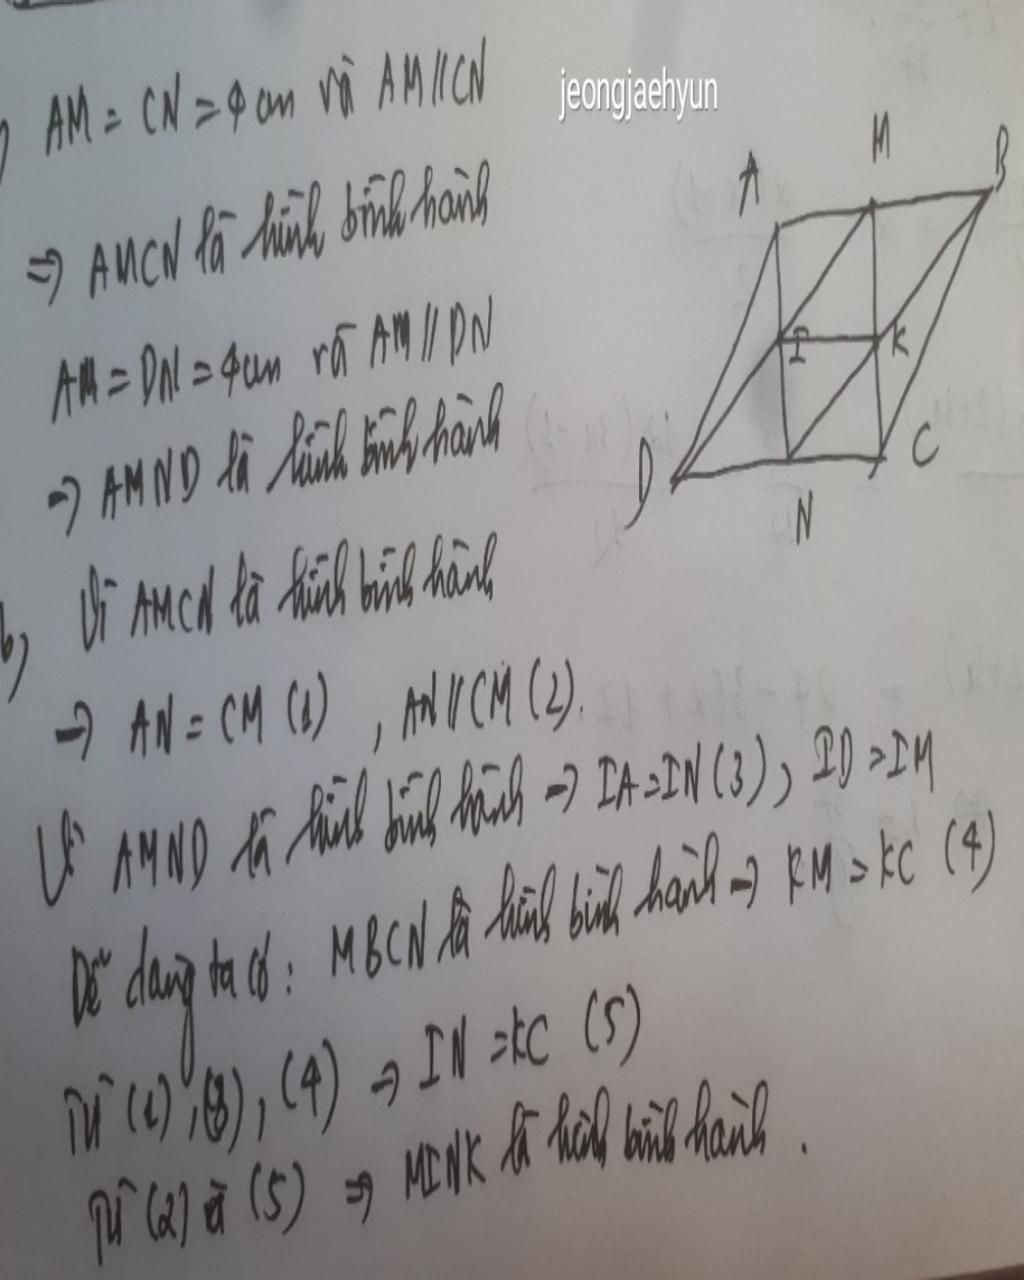 AM = CN = 4cm và AM // CN
jeongjaehyun
⇒ AMCN là hình bình hành
AM = DN = 4cm và AM // DN
→ AMND là hình bình hành
b, Vì AMCN là hình bình hành
→ AN = CM (1) , AN // CM (2).
Vì AMND là hình bình hành → IA = IN (3), ID = IM
Dễ dàng ta có: MBCN là hình bình hành → KM = KC (4)
Từ (1), (3), (4) → IN = KC (5)
Từ (2) và (5) ⇒ MINK là hình bình hành .
A M B
I K
D N C